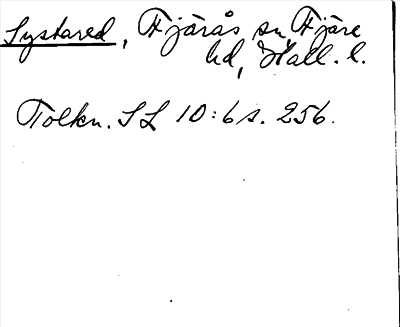 Lystared, Fjärås sn, Fjäre
hd, Hall. l.
Tolkn. SL 10:6 s. 256.